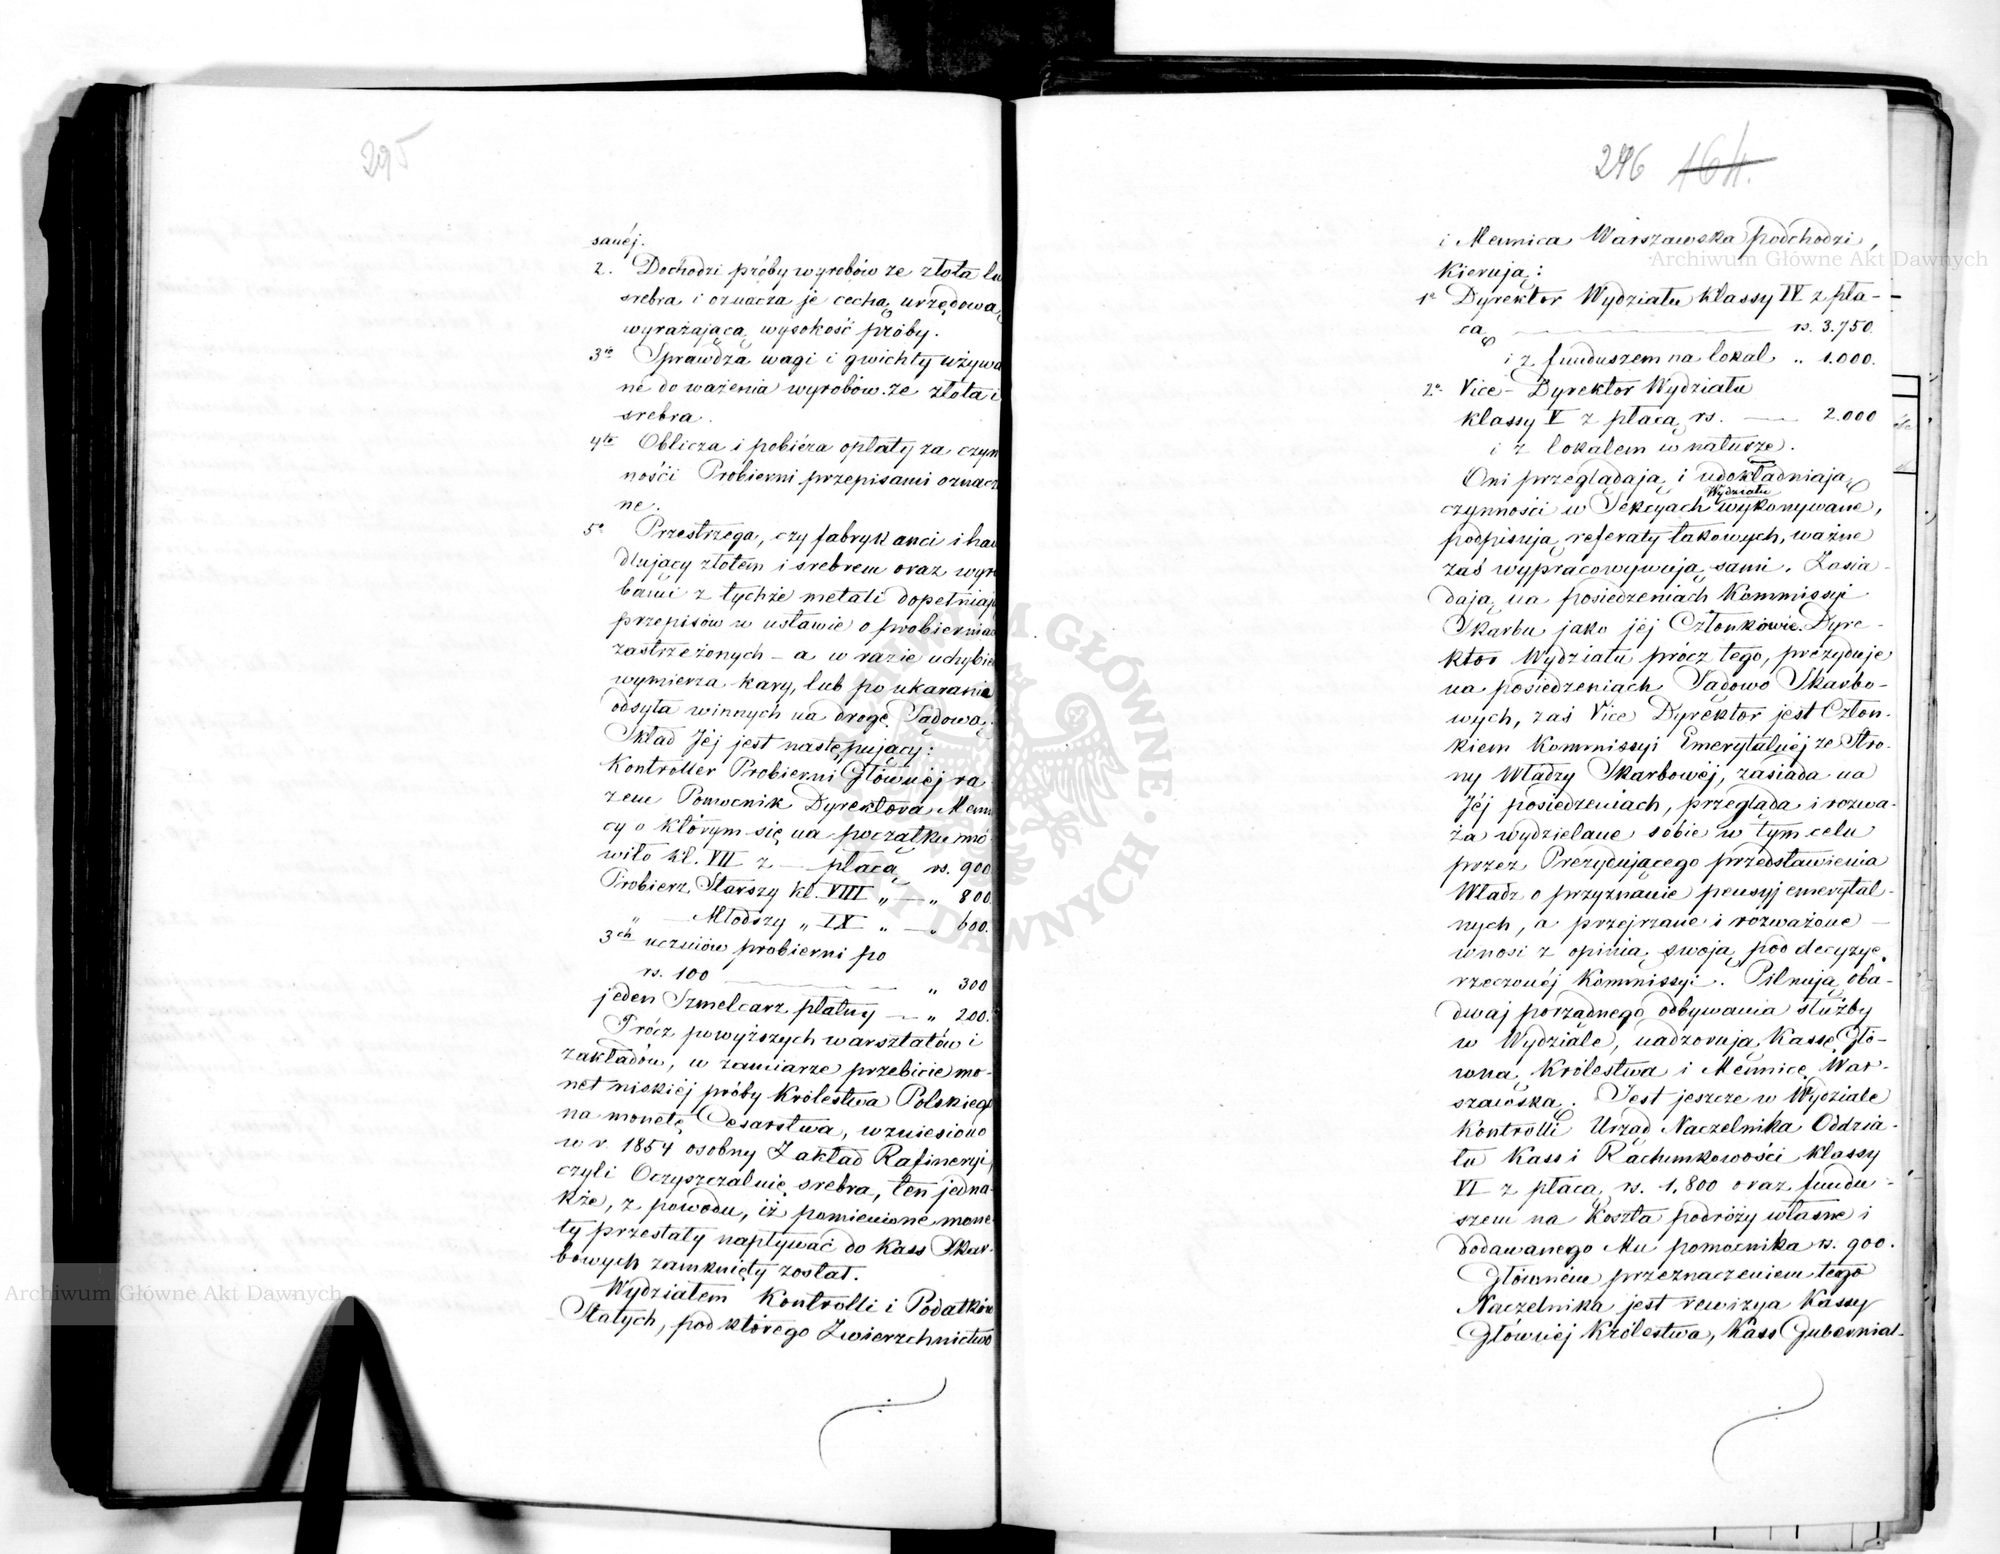 295
sanéj.
2. Dochodzi próby wyrobów ze złota lu
srebra i oznacza je cechą urzędową,
wyrażającą wysokość próby.
3io Sprawdza wagi i gwichty używa
ne do ważenia wyrobów ze złota i
srebra.
4to Oblicza i pobiéra opłaty za czyn
ności Probierni przepisami oznaczo
ne.
5o Przestrzega, czy fabrykanci i han
dlujący złotem i srebrem oraz wyro
bami z tychże metali dopełniają
przepisów w ustawie o probierniach
zastrzeżonych – a w razie uchybień
wymierza kary, lub po ukaraniu
odsyła winnych na drogę Sądową.
Skład Jéj jest następujący:
Kontroller Probierni Głównéj ra
zem Pomocnik Dyrektora Menni
cy o którym się na początku mó
wiło kl. VII z — płacą rs. 900
Probierz Starszy kl. VIII „ — „ 800
„ — Młodszy „ IX „ — „ 600.
3ch uczniów probierni po
rs. 100 — „ 300
jeden Szmelcarz płatny — „ 200.
Prócz powyższych warsztatów i
zakładów, w zamiarze przebicie mo-
net niskiéj próby Królestwa Polskiego
na monetę Cesarstwa, wzniesiono
w r. 1854 osobny Zakład Rafineryi
czyli Oczyszczalnię srebra, ten jedna-
kże, z powodu, iż pomienione mone-
ty przestały napływać do Kass Skar-
bowych zamknięty został.
Wydziałem Kontrolli i Podatków
Stałych, pod którego Zwierzchnictwo
296 164.
i Mennica Warszawska podchodzi,
Kierują:
1o Dyrektor Wydziału klassy IV z pła-
cą — rs. 3.750.
i z funduszem na lokal „ 1.000.
2o Vice-Dyrektor Wydziału
klassy V z płacą rs. — 2.000
i z lokalem w naturze.
Oni przeglądają i udokładniają
Wydziału
czynności w Sekcyach wykonywane,
podpisują referaty takowych, ważne
zaś wypracowywują sami. Zasia-
dają na posiedzeniach Kommissyi
Skarbu jako jéj Członkowie. Dyre-
ktor Wydziału prócz tego, prezyduje
na posiedzeniach Sądowo Skarbo-
wych, zaś Vice Dyrektor jest Człon-
kiem Kommissyi Emerytalnéj ze Stro-
ny Władzy Skarbowéj, zasiada na
Jéj posiedzeniach, przegląda i rozwa-
ża wydzielane sobie w tym celu
przez Prezydującego przedstawienia
Władz o przyznanie pensyj emerytal-
nych, a przejrzane i rozważone —
wnosi z opinią swoją pod decyzyę
rzeczonéj Kommissyi. Pilnują oba-
dwaj porządnego odbywania służby
w Wydziale, nadzorują Kassę Głó-
wną Królestwa i Mennicę War-
szawską. Jest jeszcze w Wydziale
Kontrolli Urząd Naczelnika Oddzia-
łu Kass i Rachunkowości klassy
VI z płacą rs. 1.800 oraz fundu-
szem na Koszta podróży własne i
dodawanego Mu pomocnika rs. 900.
Główném przeznaczeniem tego
Naczelnika jest rewizya Kassy
Głównéj Królestwa, Kass Gubernial-
Archiwum Główne Akt Dawnych
Archiwum Główne Akt Dawnych